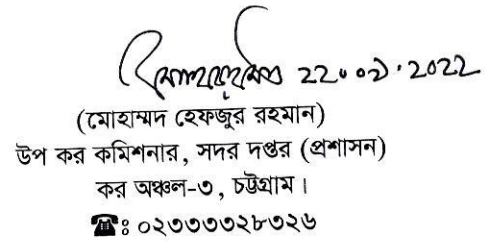 22.০৯.2022
(মোহাম্মদ হেফজুর রহমান)
উপ কর কমিশনার, সদর দপ্তর (প্রশাসন)
কর অঞ্চল-৩, চট্টগ্রাম।
☎ঃ ০২৩৩৩৩২৮৩২৬